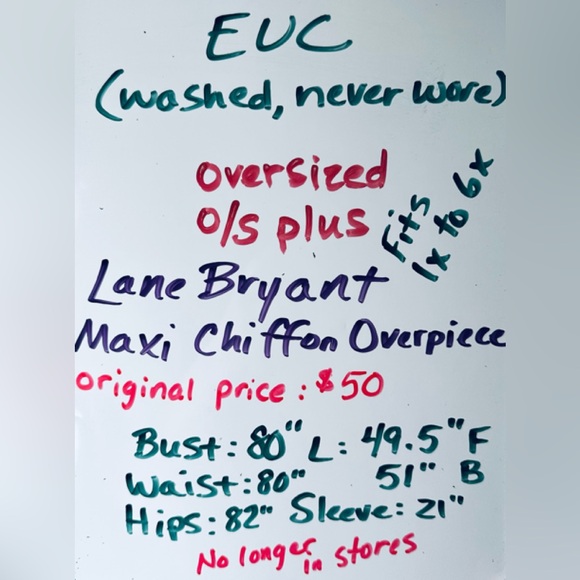 EUC
(washed, never wore)
oversized
o/s plus
Fits
1x to 6x
Lane Bryant
Maxi Chiffon Overpiece
original price: $50
Bust: 80" L: 49.5" F
Waist: 80" 51" B
Hips: 82" Sleeve: 21"
No longer in stores